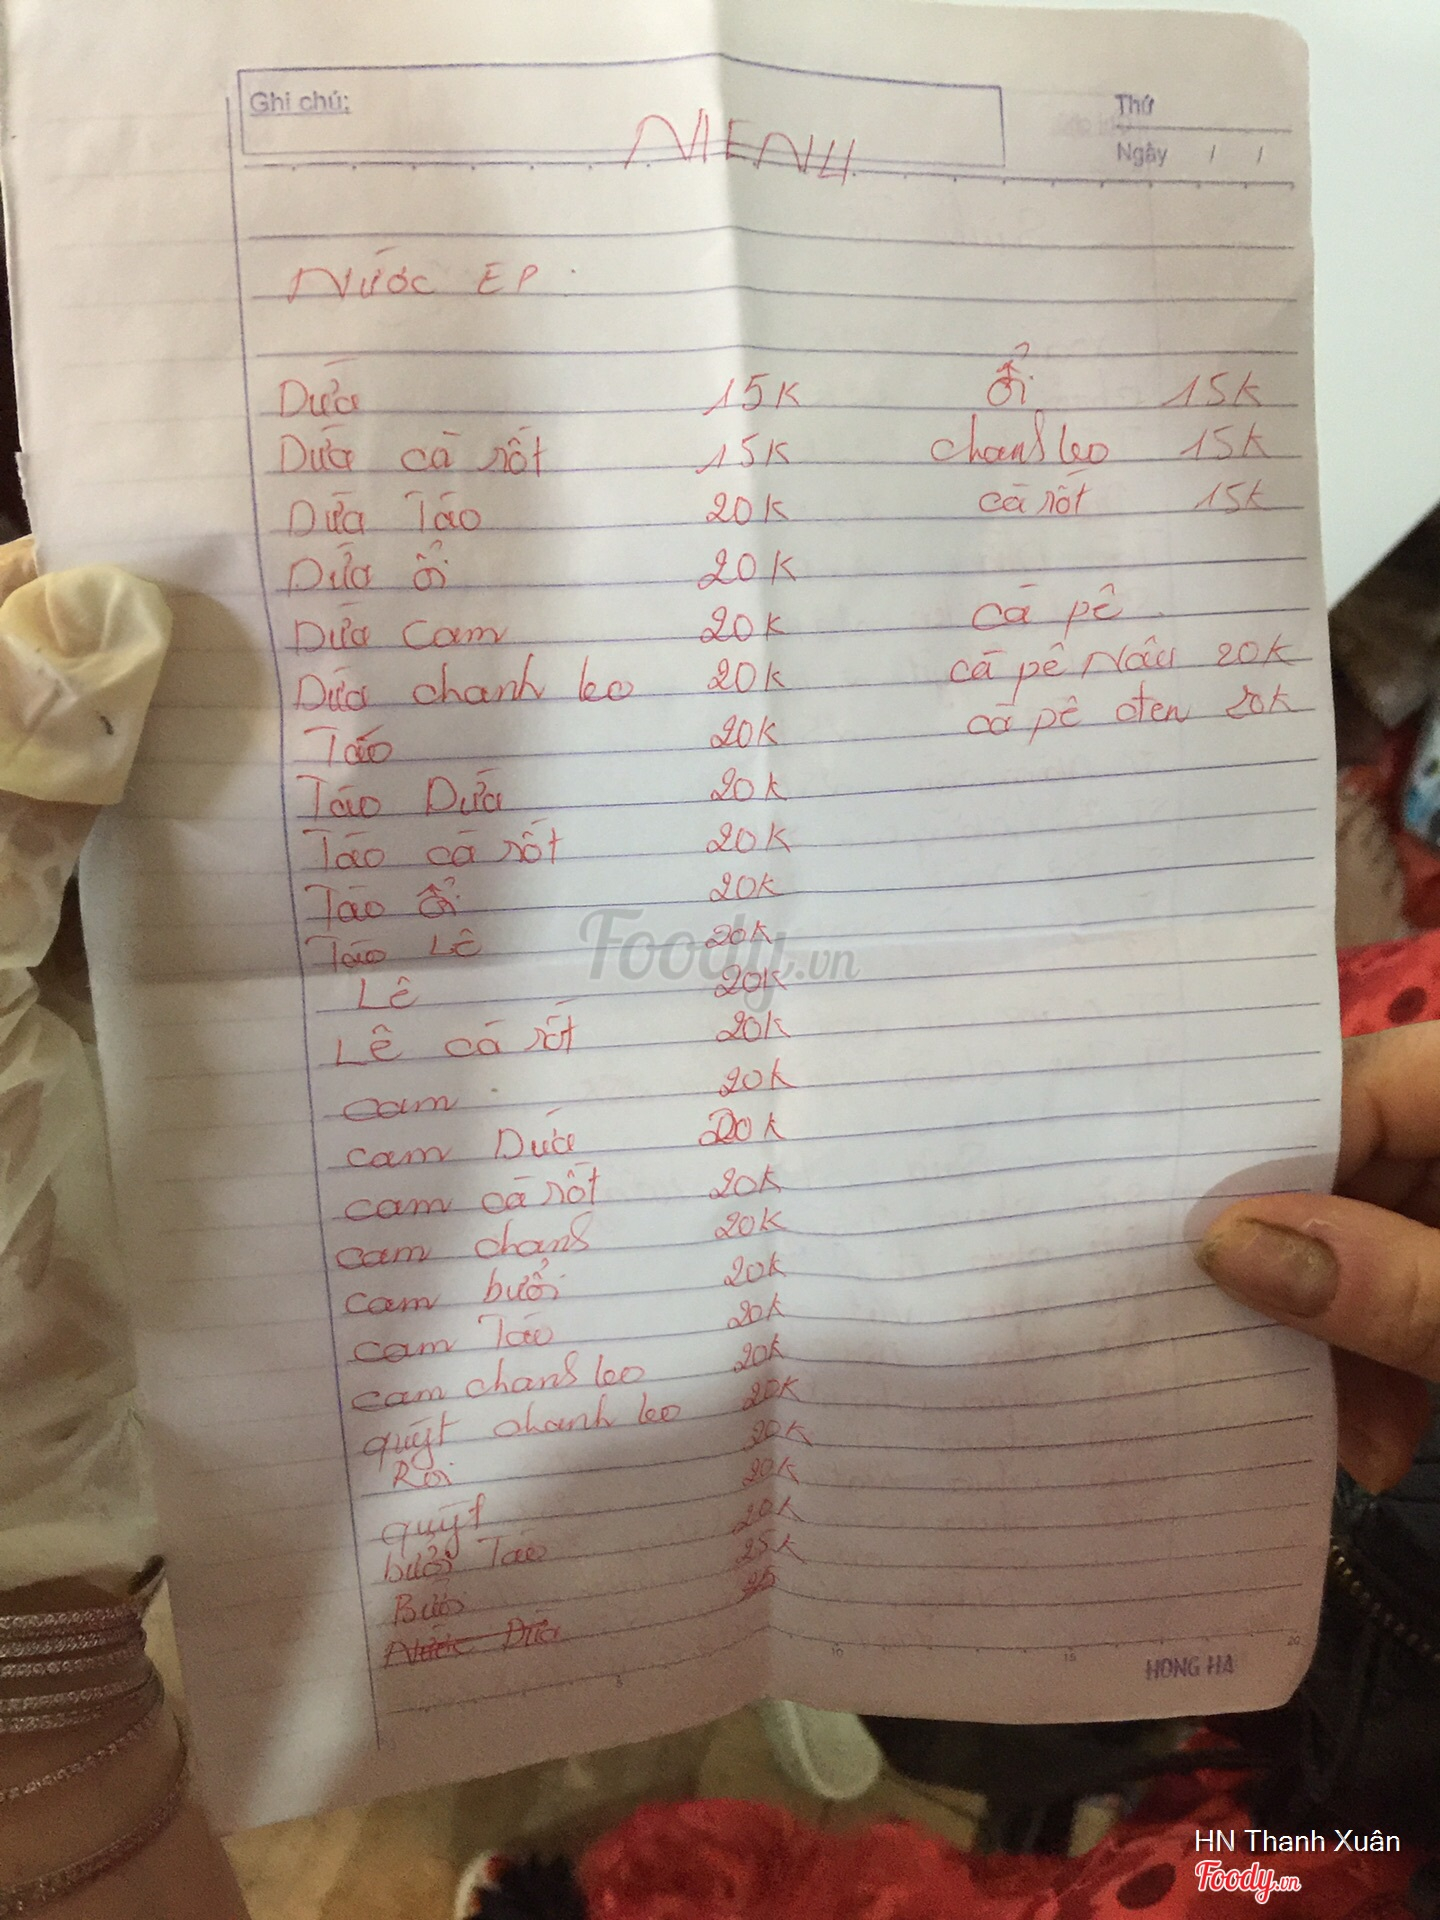 Ghi chú:
Thứ
Ngày / /
MENU
Nước EP
Dứa 15K
Dứa cà rốt 15K
Dứa Táo 20K
Dứa ổi 20K
Dứa cam 20K
Dứa chanh leo 20K
Táo 20K
Táo Dứa 20K
Táo cà rốt 20K
Táo ổi 20K
Táo Lê 20K
Lê 20K
Lê cà rốt 20K
cam 20K
cam Dứa 20K
cam cà rốt 20K
cam chanh 20K
cam bưởi 20K
cam Táo 20K
cam chanh leo 20K
quýt chanh leo 20K
Roi 20K
quýt 20K
bưởi Táo 20K
Bưởi 25K
Nước Dừa 25
ổi 15K
chanh leo 15K
cà rốt 15K
cà pê
cà pê Nâu 20K
cà pê đen 20K
Foody.vn
10 15 20
HONG HA
HN Thanh Xuân
Foody.vn